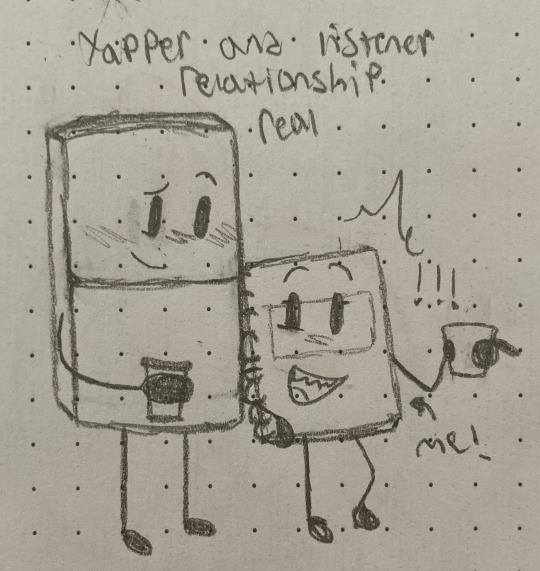 Yapper and listener
relationship
real
!!!
me!